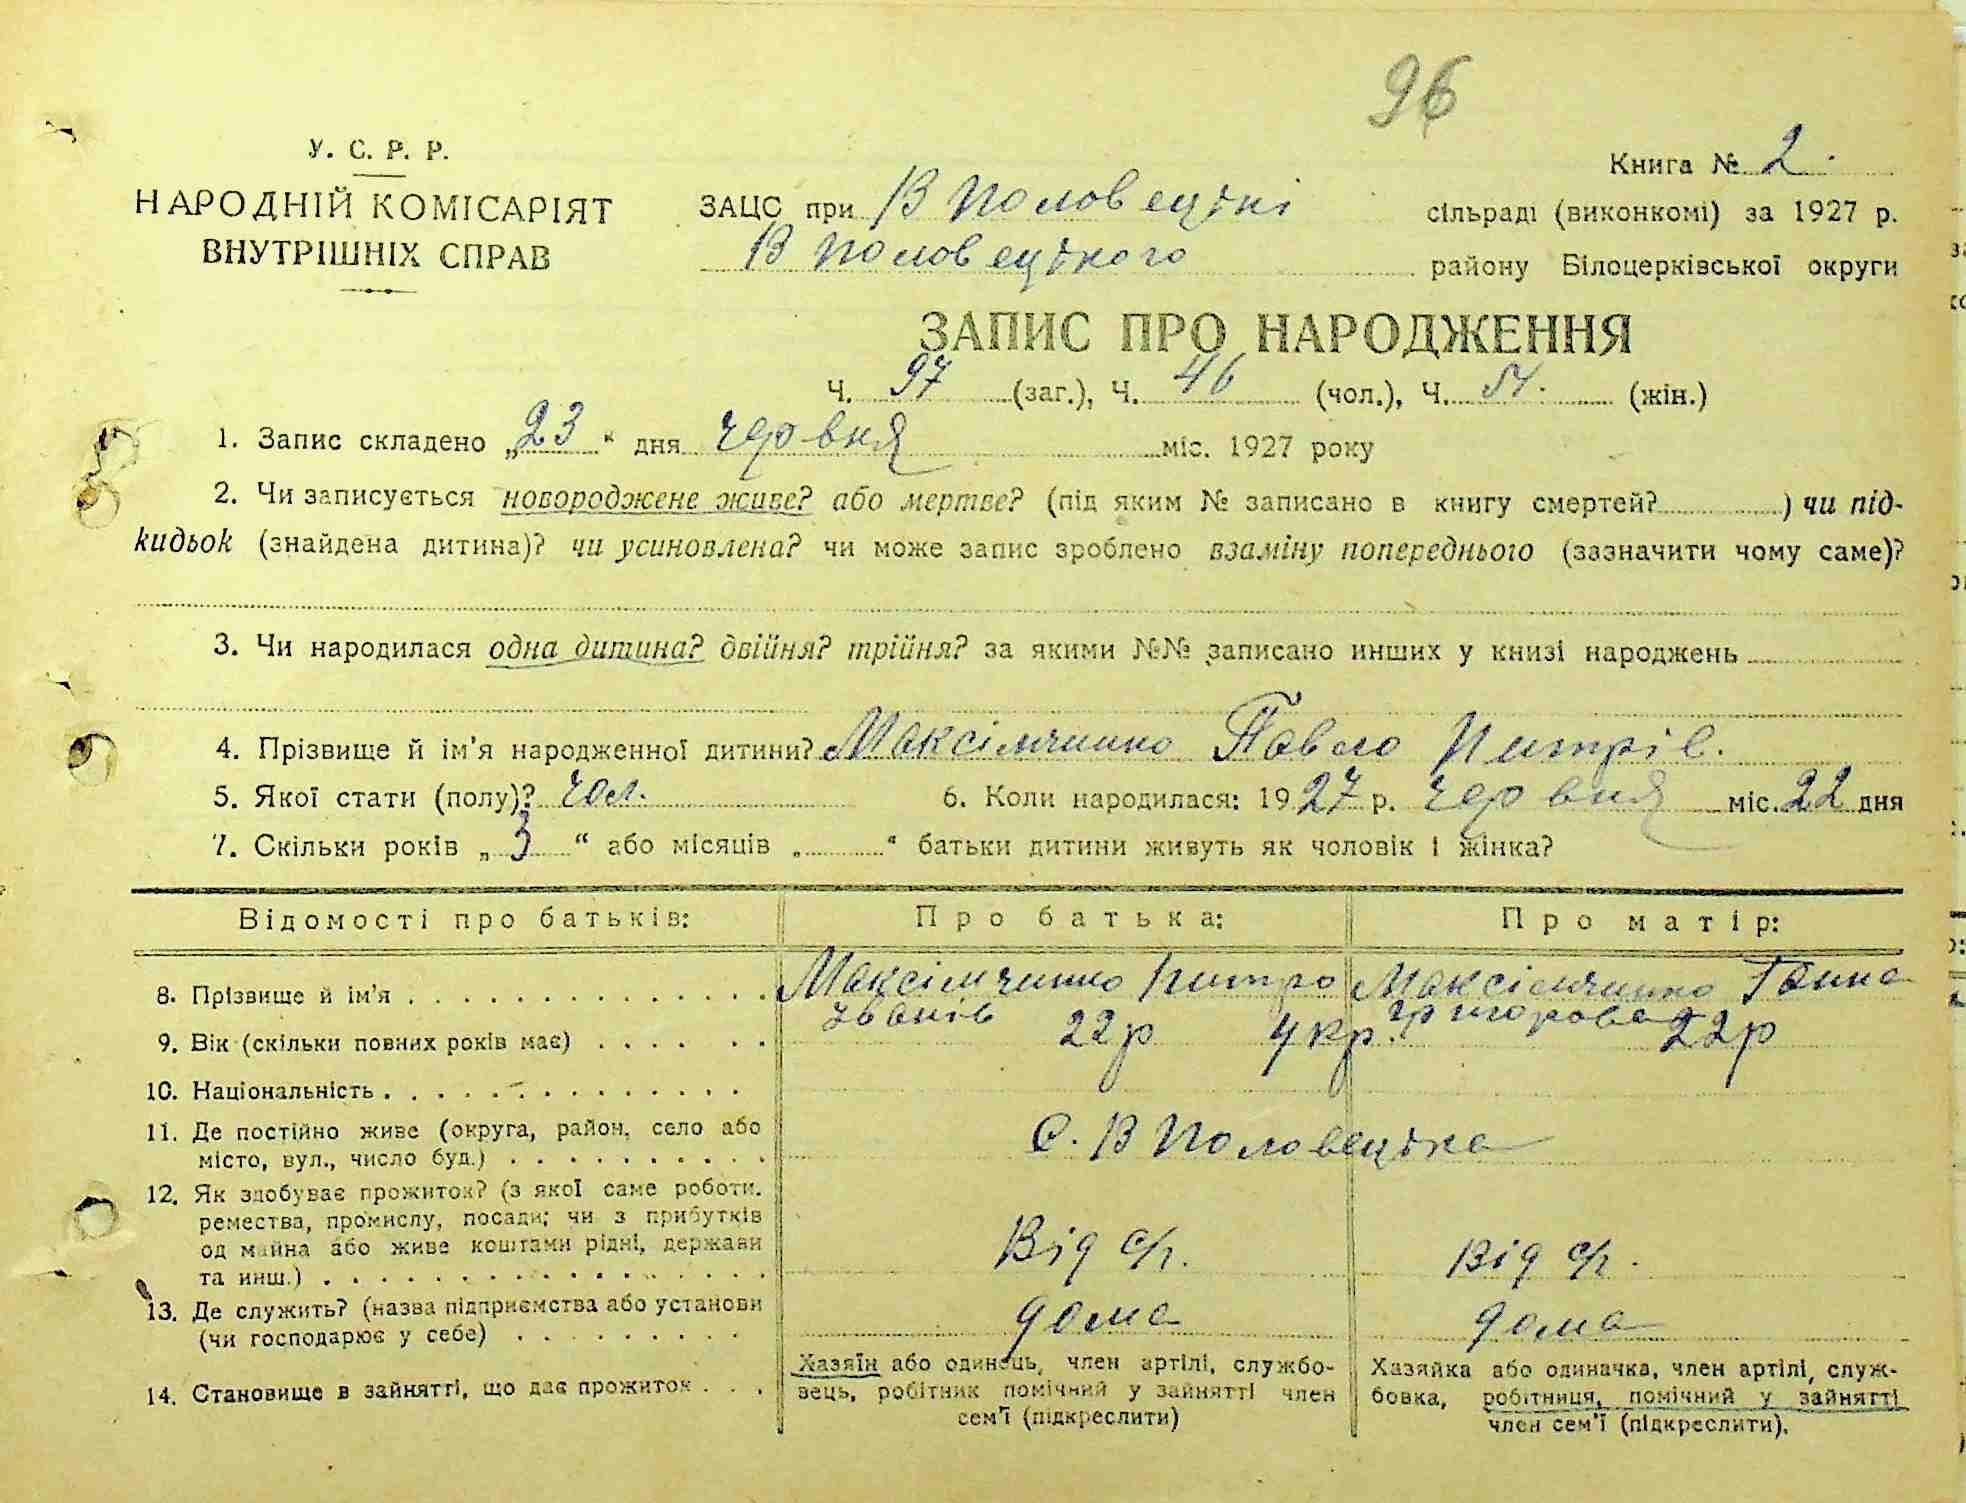 96
У. С. Р. Р.
НАРОДНІЙ КОМІСАРІЯТ
ВНУТРІШНІХ СПРАВ
Книга № 2.
ЗАЦС при В Половецькі сільраді (виконкомі) за 1927 р.
В Половецького району Білоцерківської округи
ЗАПИС ПРО НАРОДЖЕННЯ
Ч. 97 (заг.), Ч. 46 (чол.), Ч. 51. (жін.)
1. Запис складено „23“ дня червня міс. 1927 року
2. Чи записується новороджене живе? або мертве? (під яким № записано в книгу смертей? ) чи під-
кидьок (знайдена дитина)? чи усиновлена? чи може запис зроблено взаміну попереднього (зазначити чому саме)?
3. Чи народилася одна дитина? двійня? трійня? за якими №№ записано инших у книзі народжень
4. Прізвище й ім'я народженної дитини? Максімчинко Павло Питрів.
5. Якої стати (полу)? чол. 6. Коли народилася: 1927 р. червня міс. 22 дня
7. Скільки років „3“ або місяців „ “ батьки дитини живуть як чоловік і жінка?
Відомості про батьків: Про батька: Про матір:
8. Прізвище й ім'я Максімчинко Питро Максімчинко Ганна
Іванів Григорова
9. Вік (скільки повних років має) 22р Укр. 22р
10. Національність
11. Де постійно живе (округа, район, село або
місто, вул., число буд.) С. В Половецька
12. Як здобуває прожиток? (з якої саме роботи,
ремества, промислу, посади; чи з прибутків
од майна або живе коштами рідні, держави
та инш.) Від с/г. Від с/г.
13. Де служить? (назва підприємства або установи
(чи господарює у себе) дома дома
14. Становище в зайнятті, що дає прожиток
Хазяїн або одинець, член артілі, службо-
вець, робітник помічний у зайнятті член
сем'ї (підкреслити)
Хазяйка або одиначка, член артілі, служ-
бовка, робітниця, помічний у зайнятті
член сем'ї (підкреслити).